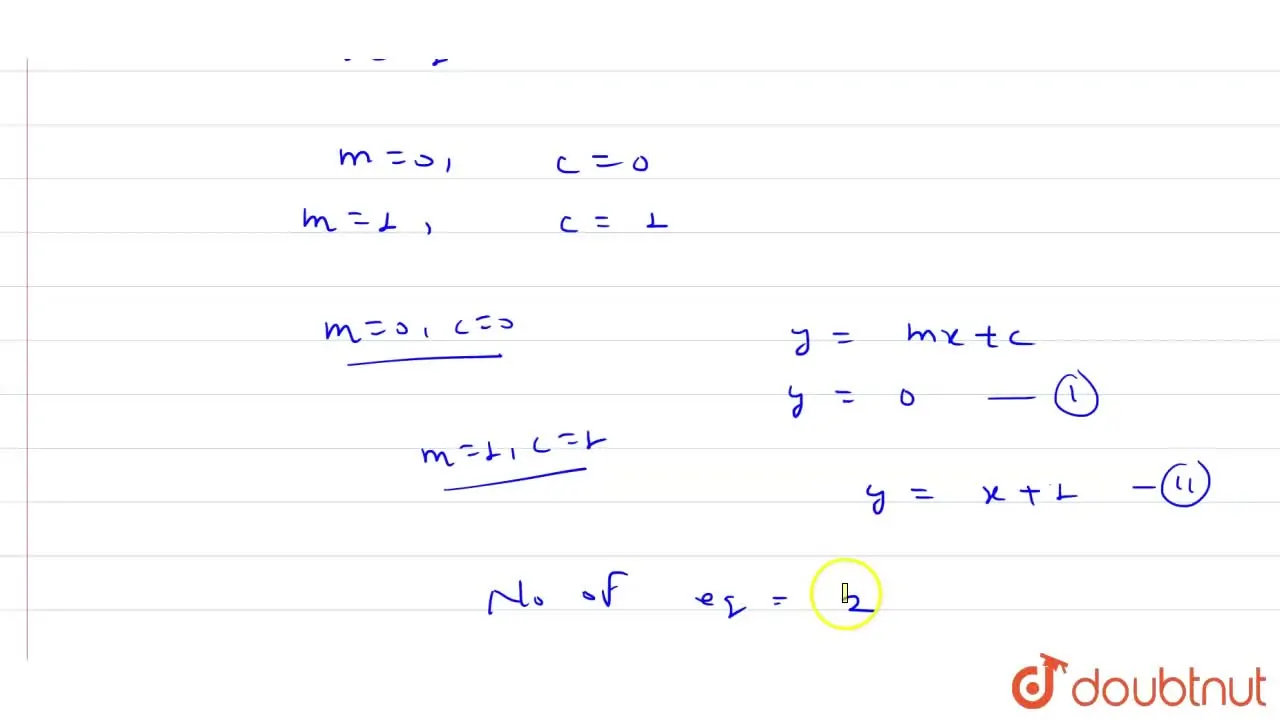 m = 0, c = 0
m = 1, c = 1
m = 0, c = 0
y = mx + c
y = 0 — (i)
m = 1, c = 1
y = x + 1 — (ii)
No of eq = 2
doubtnut